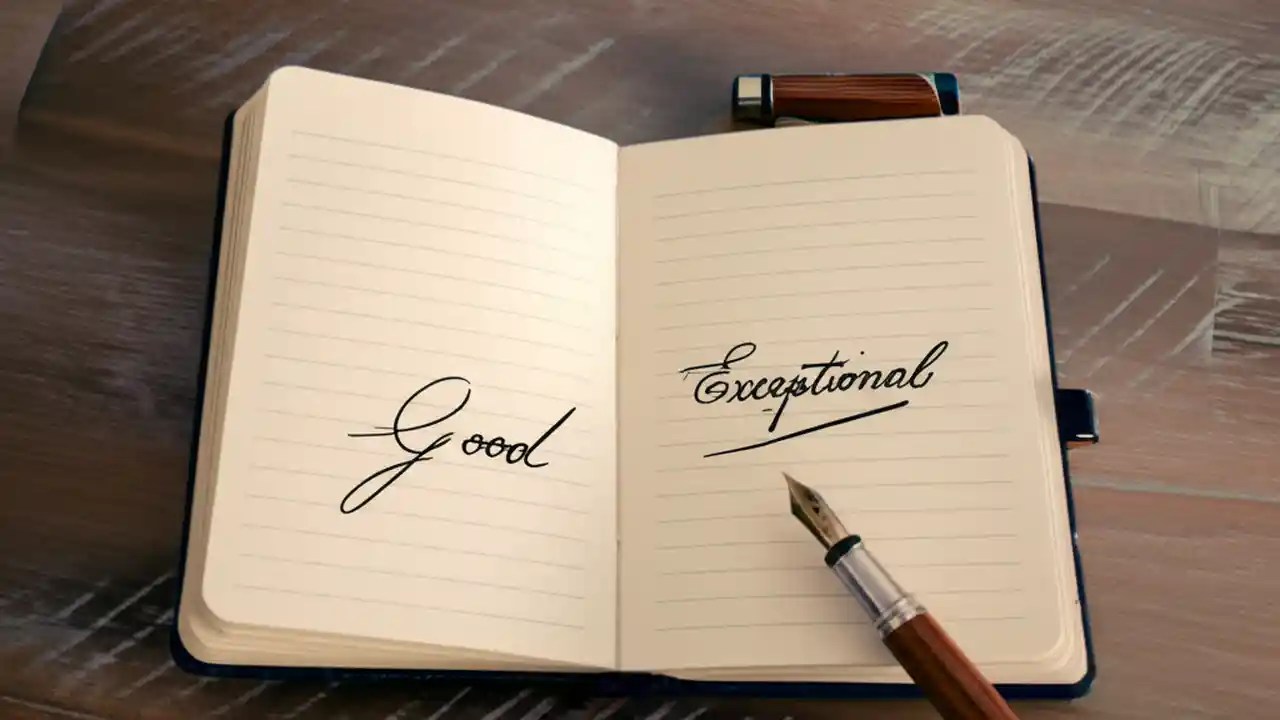 Good
Exceptional